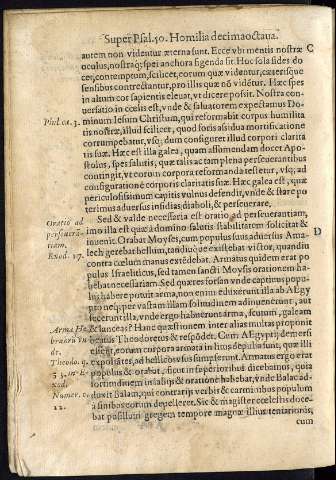 Super Psal. 50. Homilia decimaoctava.
autem non videntur æterna sunt. Ecce vbi mentis nostræ C
oculus, nostræq; spei anchora figenda sit. Huc sola fides do-
cet, contemptum, scilicet, eorum quæ videntur, exterisque
sensibus contrectantur, pro illis quæ nõ videntur. Hæc spes
in altum cor sapientis eleuat, vt dicere possit. Nostra con-
Phil. ca. 3. versatio in cœlis est, vnde & saluatorem expectamus Do-
minum Iesum Christum, qui reformabit corpus humilita
tis nostræ, illud scilicet, quod foris assidua mortificatione
corrumpebatur, vsq; dum configuret illud corpori clarita
tis suæ. Hæc est illa galea, quam assumendam docet Apo-
stolus, spes salutis, quæ talis ac tam plena perseuerantibus
contingit, vt corpora reformanda testetur, vsq; ad
configurationẽ corporis claritatis suæ. Hæc galea est, quæ
periculosissimum capitis vulnus defendit, vnde & stare po
terimus aduersus insidias diaboli, & perseuerare.
Oratio ad Sed & valde necessaria est oratio ad perseuerantiam,
perseuerã- imo illa est quæ à domino salutis stabilitatem solicitat & D
tiam. inuenit. Orabat Moyses, cum populus suus aduersus Ama-
Exod. 17. lech gerebat bellum, tandiuque existebat victor, quandiu
contra cœlum manus extẽdebat. Armatus quidem erat po
pulus Israeliticus, sed tamen sancti Moysis orationem ha-
bebat necessariam. Sed quæres forsan vnde captiuus popu-
lus habere potuit arma, non enim emilitum illa ab AEgy
pto neque per vastam illam solitudinem adinuenerunt, aut
fecerunt illa, vnde ergo habuerunt arma, scutum, galeam
Arma He & lanceas? Hanc quæstionem inter alias multas proponit
bræorũ vn beatus Theodoretus & respõdet. Cum AEgyptij demersi
de. essent, eorum corpora armata in litus depulsa sunt, quæ illi
Theodo. q. expoliatis, ad hellicos vsus sumpserunt. Armatus ergo erat
populus & orabat, sicut in superioribus dicebimus, quia
fortitudinem in alijs & oratione habebat, vnde Balac ad-
Numer. c. duxit Balam, qui contrarijs verbis & carminibus populum
22. à finibus eorum depelleret. Sic & magister ecclesiis doce-
bat pusillum gregem tempore magnæ illius tentationis,
cum